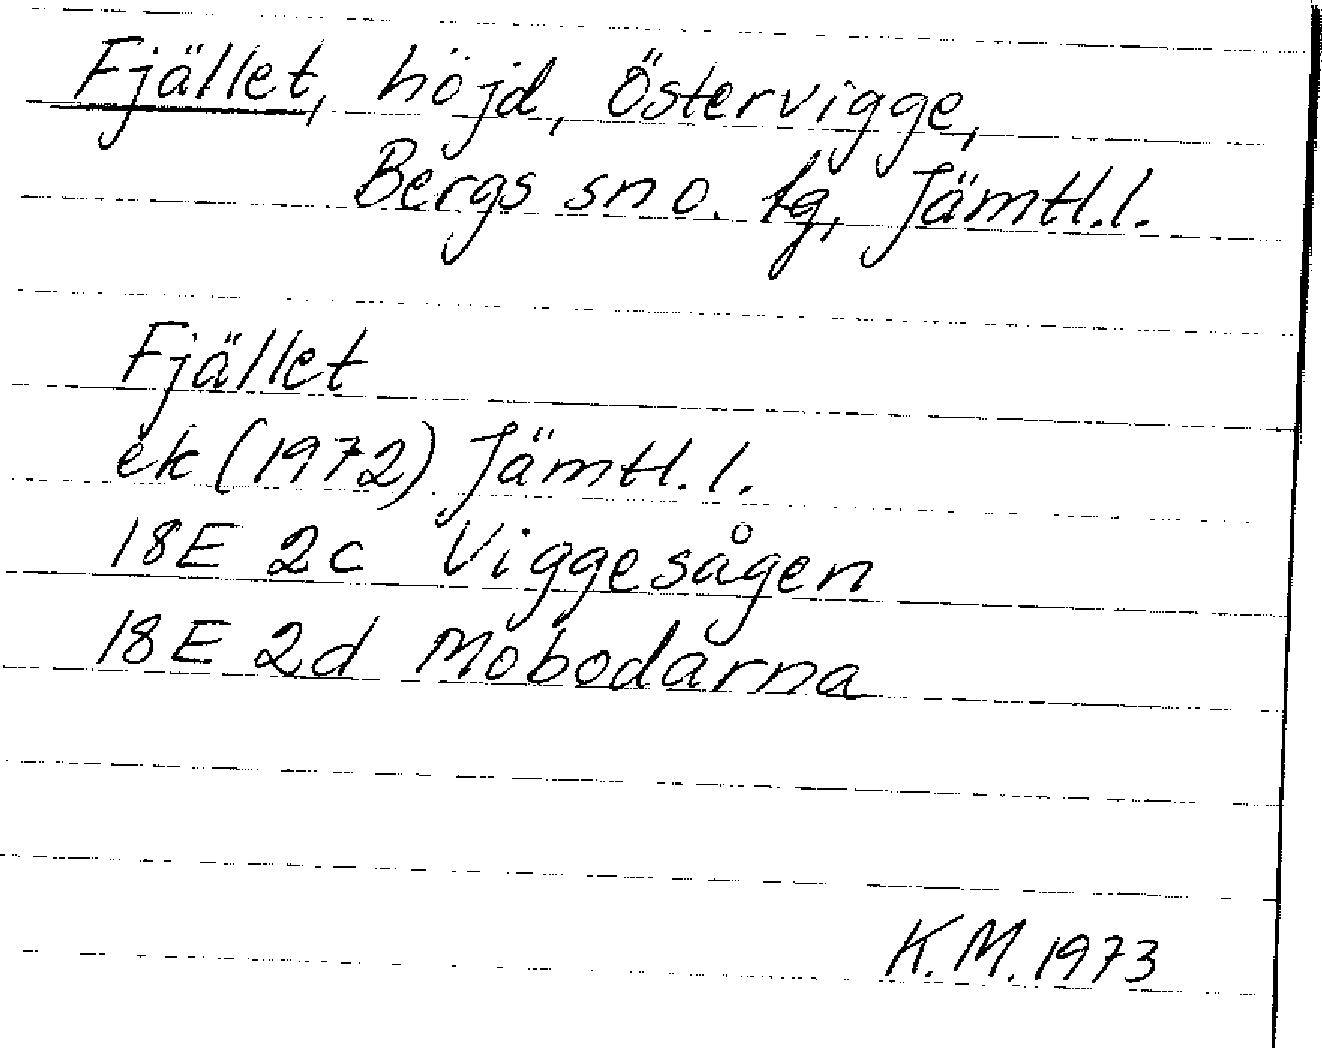 Fjället, höjd, Östervigge,
Bergs sn o. tg, Jämtl.l.
Fjället
ek (1972) Jämtl.l.
18E 2c Viggesågen
18E 2d Mobodarna
K.M. 1973